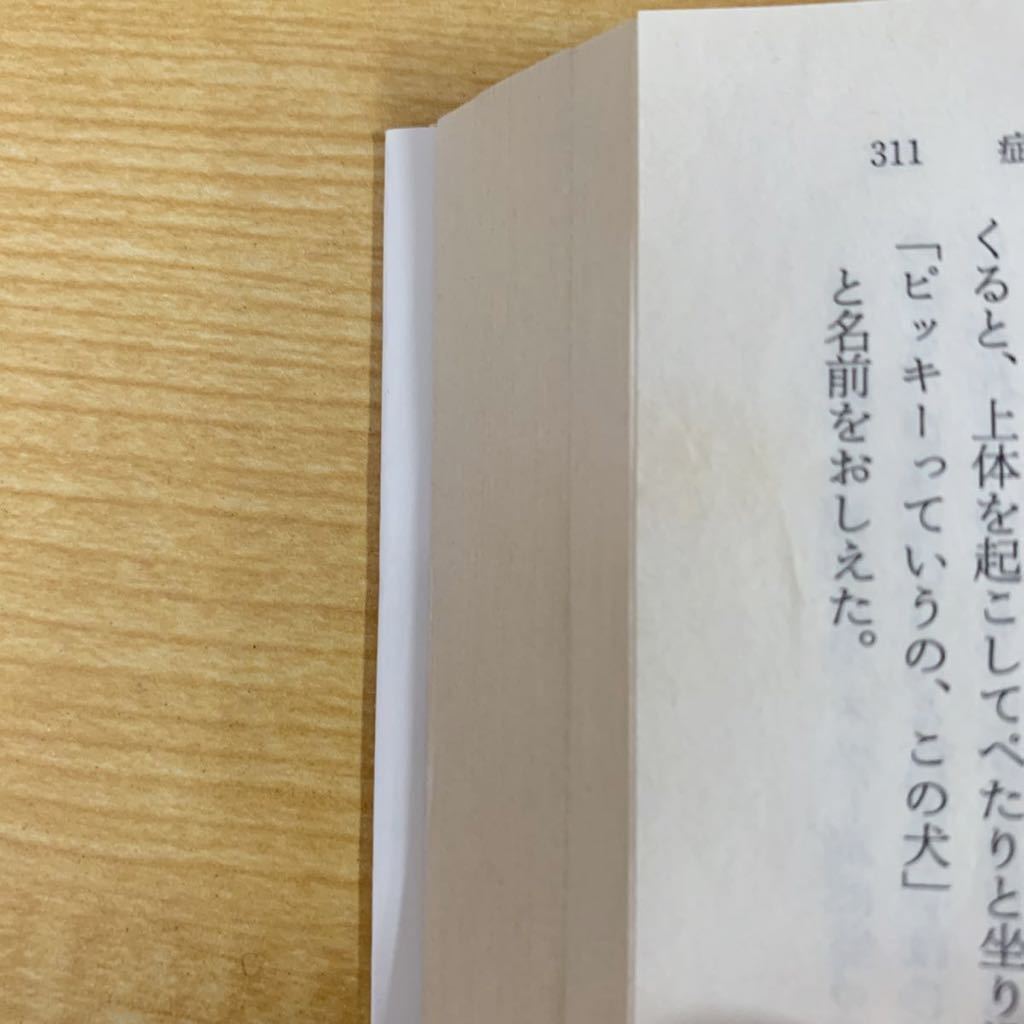 311 症
くると、上体を起こしてぺたりと坐り
「ピッキーっていうの、この犬」
と名前をおしえた。